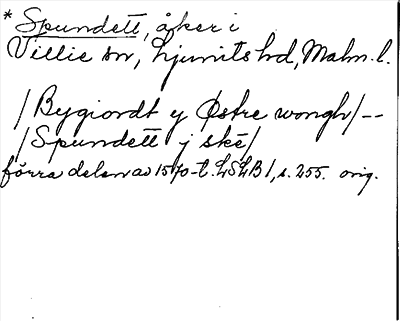 * Spundett, åker i
Villie sn, Ljunits hd, Malm. l.
/Bygiordt y Østre wongh/--
/Spundett j ske/
förra delen av 1570-t. LSLB 1, s. 255. orig.